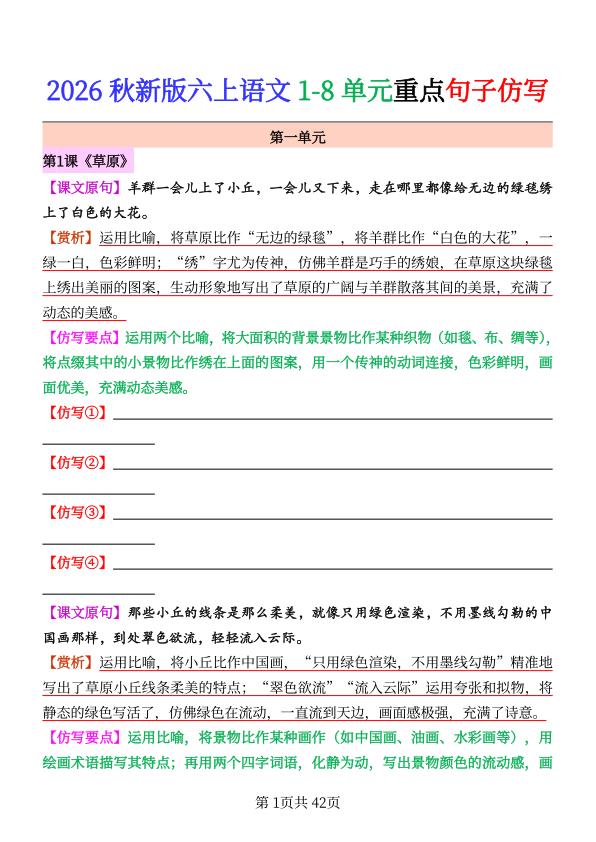 2026 秋新版六上语文 1-8 单元重点句子仿写
第一单元
第1课《草原》
【课文原句】羊群一会儿上了小丘，一会儿又下来，走在哪里都像给无边的绿毯绣
上了白色的大花。
【赏析】运用比喻，将草原比作“无边的绿毯”，将羊群比作“白色的大花”，一
绿一白，色彩鲜明；“绣”字尤为传神，仿佛羊群是巧手的绣娘，在草原这块绿毯
上绣出美丽的图案，生动形象地写出了草原的广阔与羊群散落其间的美景，充满了
动态的美感。
【仿写要点】运用两个比喻，将大面积的背景景物比作某种织物（如毯、布、绸等），
将点缀其中的小景物比作绣在上面的图案，用一个传神的动词连接，色彩鲜明，画
面优美，充满动态美感。
【仿写①】
【仿写②】
【仿写③】
【仿写④】
【课文原句】那些小丘的线条是那么柔美，就像只用绿色渲染，不用墨线勾勒的中
国画那样，到处翠色欲流，轻轻流入云际。
【赏析】运用比喻，将小丘比作中国画，“只用绿色渲染，不用墨线勾勒”精准地
写出了草原小丘线条柔美的特点；“翠色欲流”“流入云际”运用夸张和拟物，将
静态的绿色写活了，仿佛绿色在流动，一直流到天边，画面感极强，充满了诗意。
【仿写要点】运用比喻，将景物比作某种画作（如中国画、油画、水彩画等），用
绘画术语描写其特点；再用两个四字词语，化静为动，写出景物颜色的流动感，画
第 1页共 42页